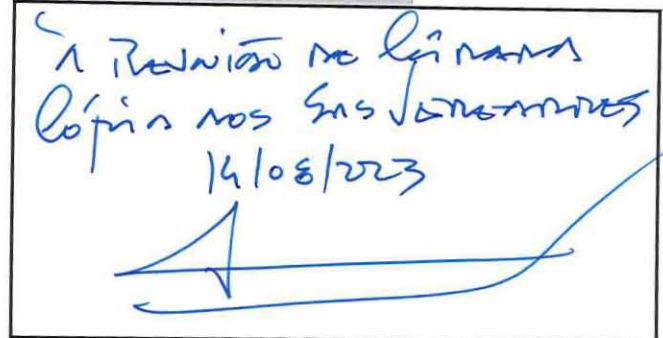 À Reunião de Câmara
Cópia aos Srs Vereadores
14/08/2023